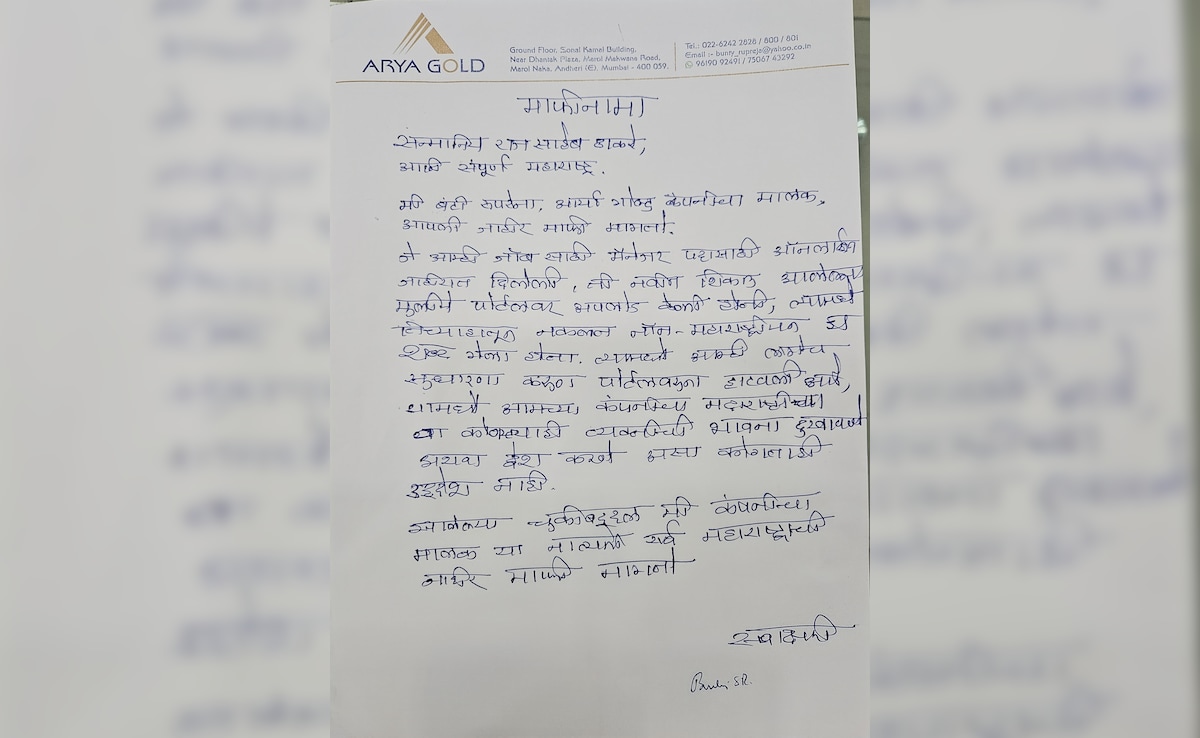 ARYA GOLD
Ground Floor, Sonal Kamal Building,
Near Dhanlak Plaza, Marol Makwana Road,
Marol Naka, Andheri (E), Mumbai - 400 059.
Tel.: 022-6242 2828 / 800 / 801
Email :- bunty_rupreja@yahoo.co.in
96190 92491 / 75067 43292
माफीनामा
सन्मानिय राज साहेब ठाकरे,
आणि संपूर्ण महाराष्ट्र.
मी बंटी रुपरेजा, आर्या गोल्ड कंपनीचा मालक,
आपली जाहीर माफी मागतो.
जे आम्ही जॉब साठी मॅनेजर पदासाठी ऑनलाईन
जाहीरात दिलेली, ती नवीन शिकाऊ आलेल्या
मुलीने पोर्टलवर अपलोड केली होती, त्यामध्ये
तिच्याहातून नकळत नॉन-महाराष्ट्रीयन हा
शब्द गेला होता. त्यामध्ये आम्ही लगेच
सुधारणा करून पोर्टलवरून हटवली आहे,
यामध्ये आमच्या कंपनीचा महाराष्ट्रीयच्या
वा कोणत्याही व्यक्तीची भावना दुखावणे
अथवा द्वेश करणे असा कोणताही
उद्देश नाही.
झालेल्या चुकीबद्दल मी कंपनीचा
मालक या नात्याने सर्व महाराष्ट्राची
जाहीर माफी मागतो
स्वाक्षरी